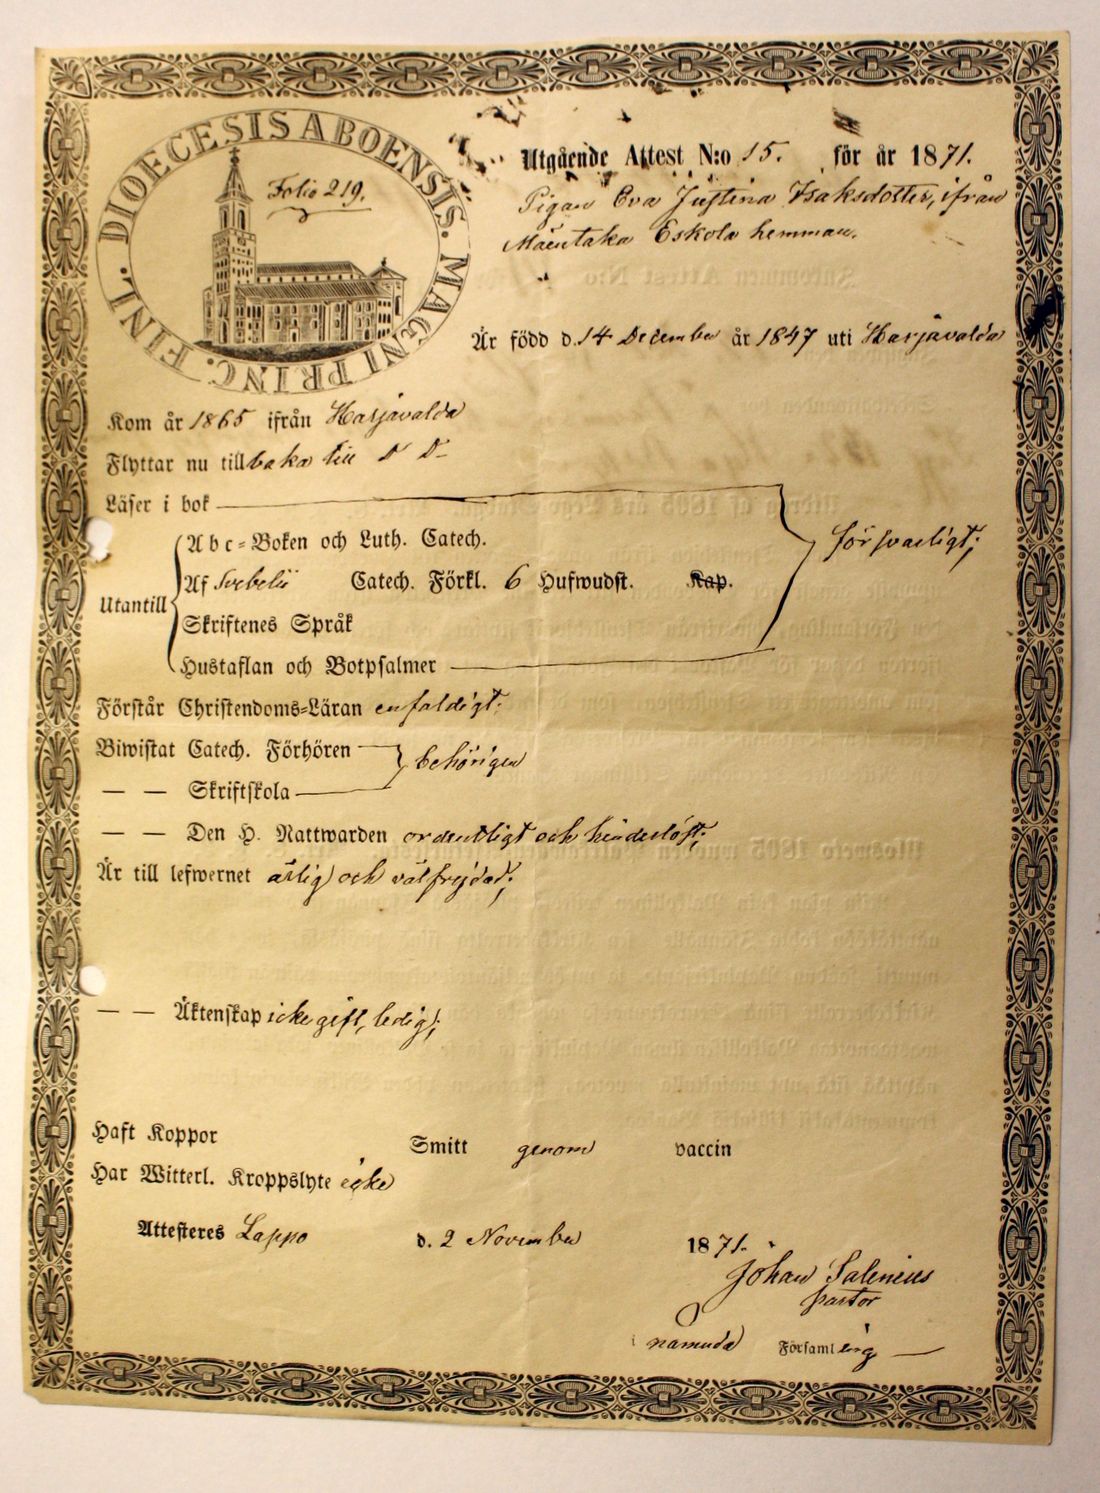 DIOECESIS ABOENSIS. MAGNI PRINC. FINL.
Folio 219.
Utgående Attest N:o 15. för år 1871.
Pigan Eva Justina Isaksdotter, ifrån
Mäentaka Eskola hemman.
Är född d. 14 December år 1847 uti Harjavalda
Kom år 1865 ifrån Harjavalda
Flyttar nu till baka till D D
Läser i bok
Abc=Boken och Luth. Catech.
försvarligt;
Utantill
Af Svebelii Catech. Förkl. 6 Hufwudst. Kap.
Skriftenes Språk
Hustaflan och Botpsalmer
Förstår Christendoms=Läran enfaldigt;
Biwistat Catech. Förhören
behörigen
— — Skriftskola
— — Den H. Nattwarden ordentligt och hinderlöst;
Är till lefwernet ärlig och välfrejdad;
— — Äktenskap icke gift, ledig;
Haft Koppor Smitt genom vaccin
Har Witterl. Kroppslyte icke
Attesteres Lappo d. 2 November 1871.
Johan Salenius
pastor
i nämnda Församling